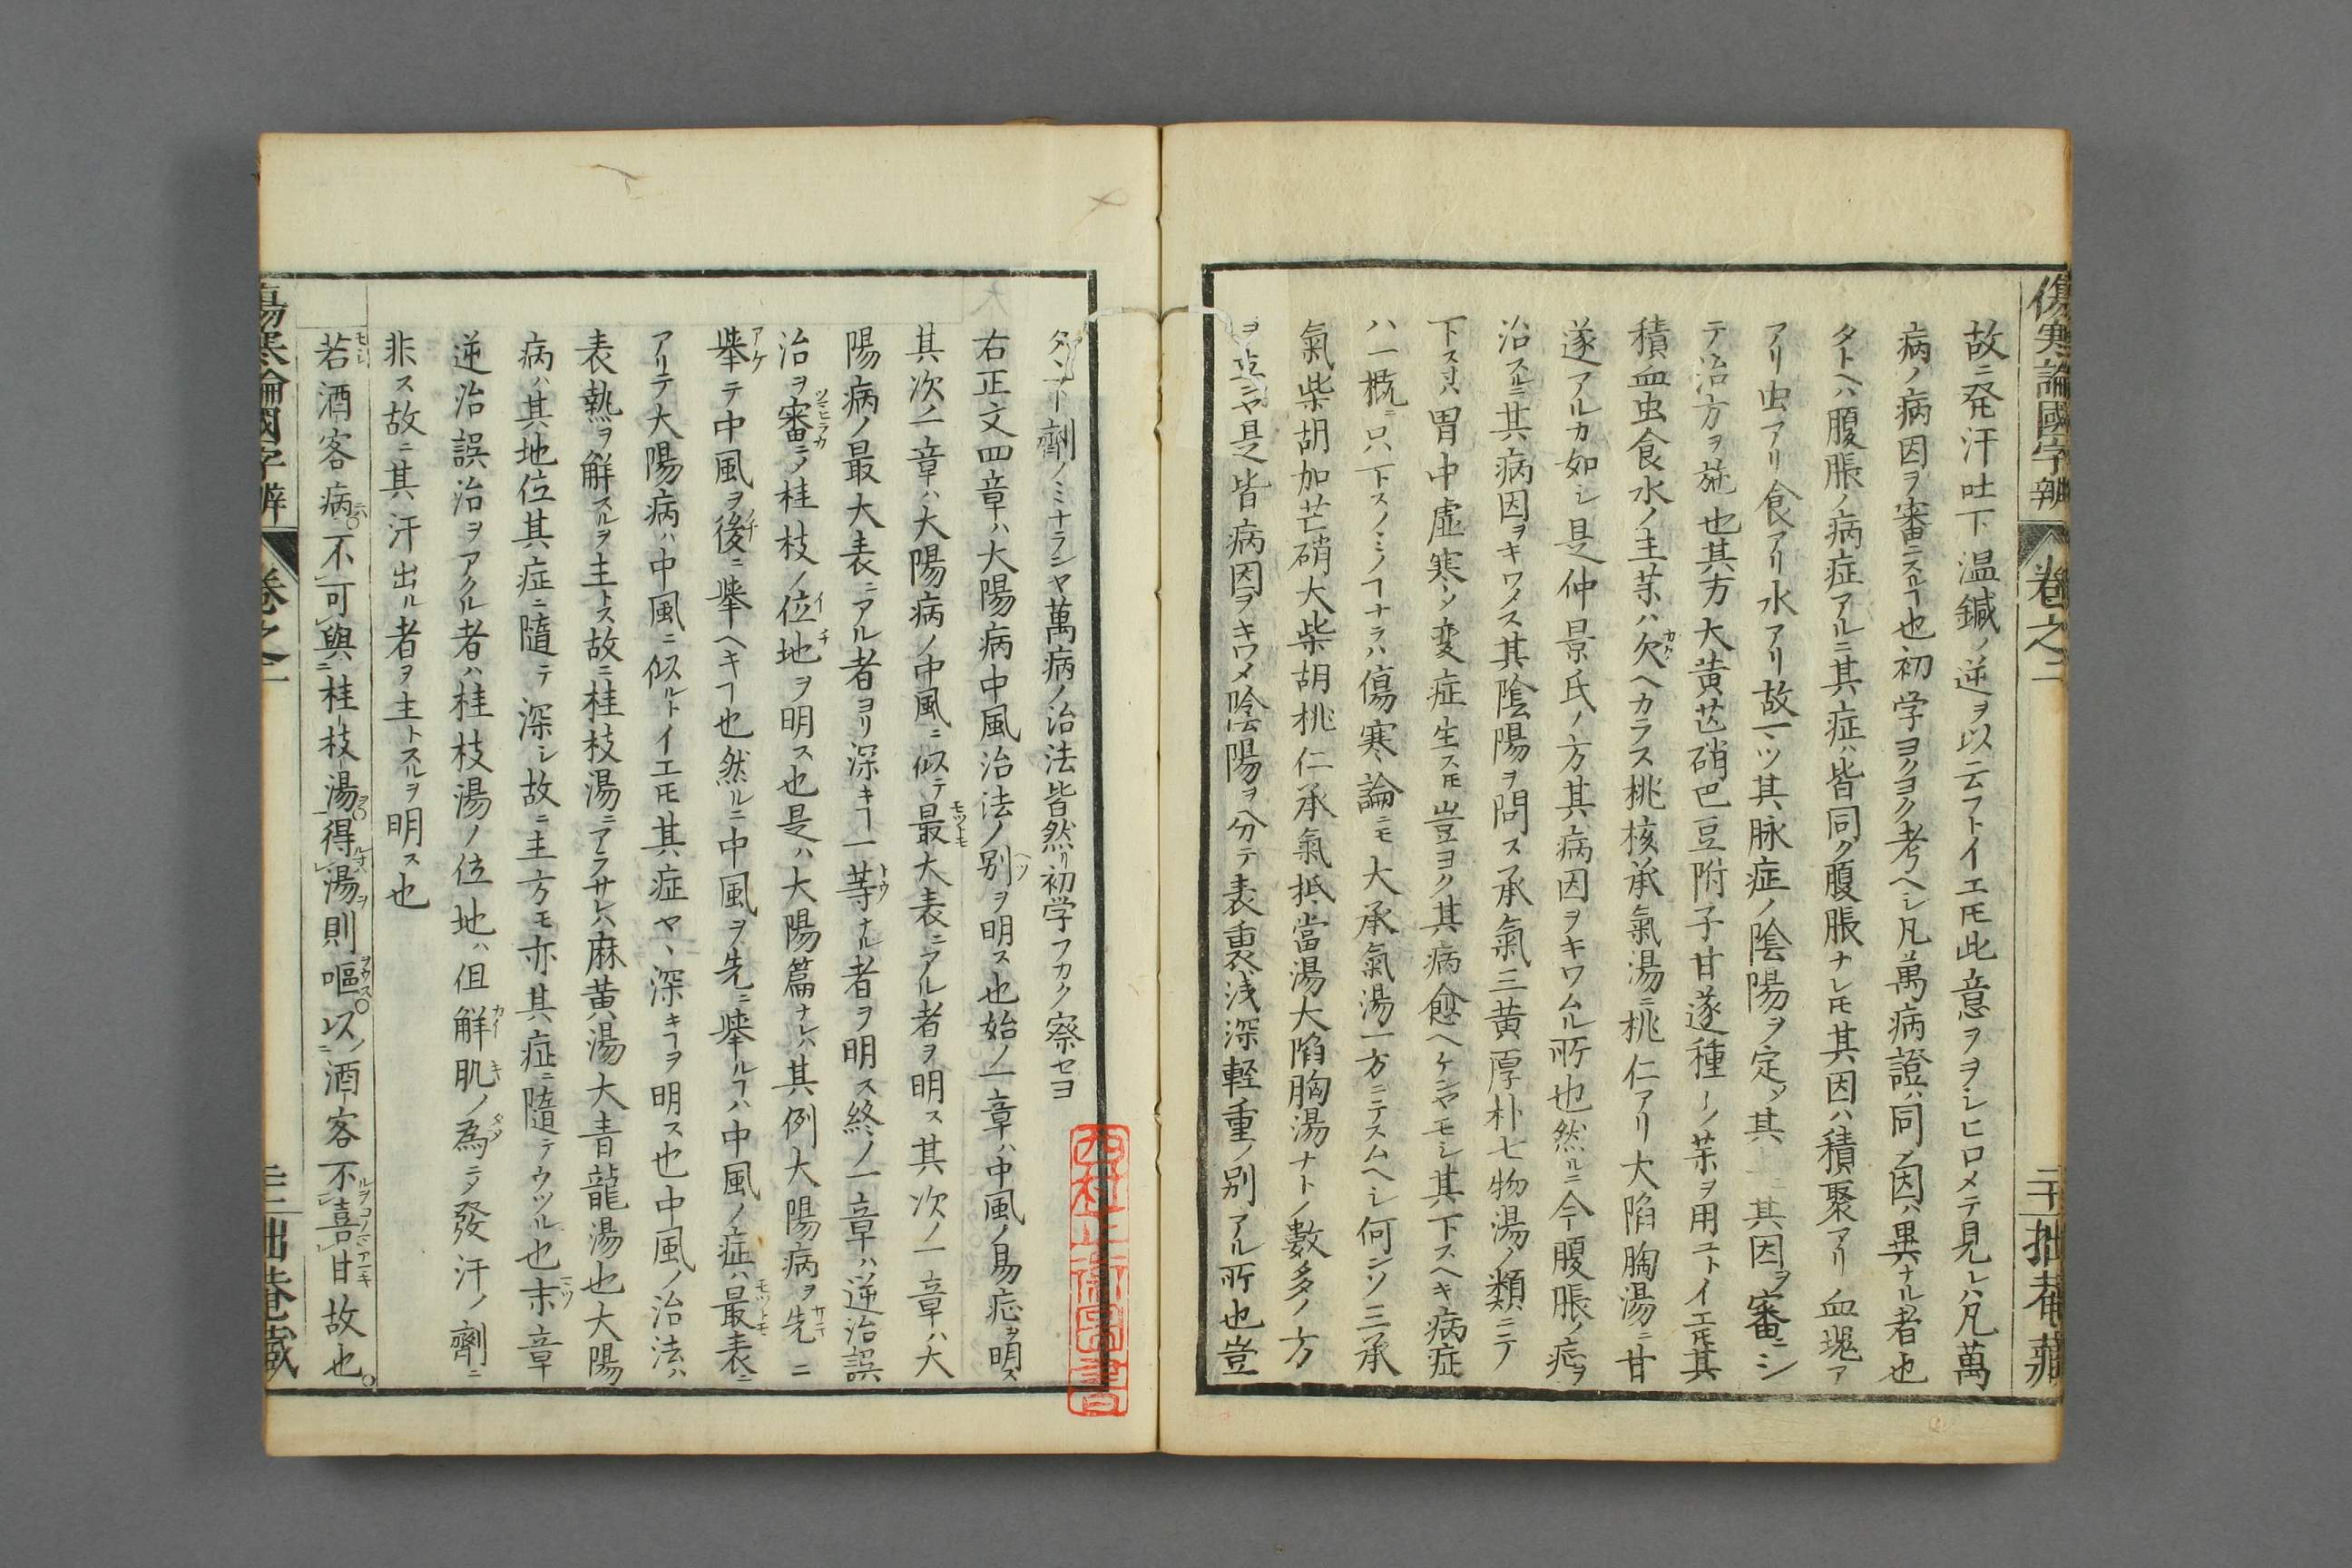 傷寒論國字辨 卷之二 二十一 拙菴藏
故ニ発汗吐下温鍼ノ逆ヲ以云フトイエ𪜈此意ヲヲシヒロメテ見レハ凡萬
病ノ病因ヲ審ニスルヿ也初学ヨクヨク考ヘシ凡萬病證ハ同ク因ハ異ナル者也
タトヘハ腹脹ノ病症アルニ其症ハ皆同ク腹脹ナレ𪜈其因ハ積聚アリ血塊ア
アリ虫アリ食アリ水アリ故一ツ其脉症ノ陰陽ヲ定メ其 ニ其因ヲ審ニシ
テ治方ヲ施也其方大黄芒硝巴豆附子甘遂種〻ノ茱ヲ用ユトイエ𪜈其
積血虫食水ノ主茱ハ欠ヘカラス桃核承氣湯ニ桃仁アリ大陷胸湯ニ甘
遂アルカ如シ是仲景氏ノ方其病因ヲキワムル所也然ルニ今腹脹ノ症ヲ
治スルニ其病因ヲキワメス其陰陽ヲ問ス承氣三黄厚朴七物湯ノ類ニテ
下ス𪜈ハ胃中虛寒ソ変症生ス𪜈豈ヨク其病愈ヘケンヤモシ其下スヘキ病症
ハ一概ニ只下スノミノヿナラハ傷寒論ニモ大承氣湯一方ニテスムヘシ何ンソ三承
氣柴胡加芒硝大柴胡桃仁承氣抵當湯大陷胸湯ナトノ數多ノ方
ヲ立ンヤ是皆病因ヲキワメ陰陽ヲ分テ表裏浅深軽重ノ別アル所也豈
タヽ下劑ノミナランヤ萬病ノ治法皆然リ初学フカク察セヨ
右正文四章ハ大陽病中風治法ノ別ヲ明ス也始ノ一章ハ中風ノ易症ヲ明ス
其次ノ一章ハ大陽病ノ中風ニ似テ最大表ニアル者ヲ明ス其次ノ一章ハ大
陽病ノ最大表ニアル者ヨリ深キヿ一等ナル者ヲ明ス終ノ一章ハ逆治誤
治ヲ審ニメ桂枝ノ位地ヲ明ス也是ハ大陽篇ナレハ其例大陽病ヲ先ニ
舉テ中風ヲ後ニ舉ヘキヿ也然ルニ中風ヲ先ニ舉ルヿハ中風ノ症ハ最表ニ
アリテ大陽病ハ中風ニ似ルトイエ𪜈其症ヤヽ深キヿヲ明ス也中風ノ治法ハ
表熱ヲ解スルヲ主トス故ニ桂枝湯ニアラサレハ麻黄湯大青龍湯也大陽
病ハ其地位其症ニ隨テ深シ故ニ主方モ亦其症ニ隨テウツル也末章
逆治誤治ヲアクル者ハ桂枝湯ノ位地ハ但解肌ノ為ニメ發汗ノ劑ニ
非ス故ニ其汗出ル者ヲ主トスルヲ明ス也
若酒客病不可與桂枝湯得湯則嘔以酒客不喜甘故也
傷寒論國字辨 卷之二 二十二 拙菴藏